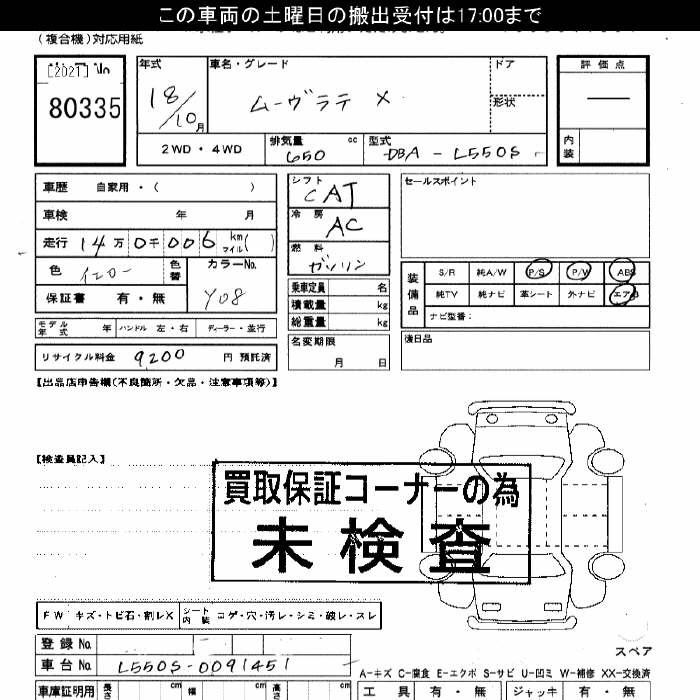 この車両の土曜日の搬出受付は17:00まで
(複合機)対応用紙
[2021] No
80335
年式 車名・グレード ドア 評価点
18/10月 ムーヴラテ X 形状
2WD・4WD 排気量 650 cc 型式 DBA - L550S 内装
車歴 自家用・( ) シフト CAT セールスポイント
車検 年 月 冷房 AC
走行 14万0千006 km マイル( ) 燃料 ガソリン
色 イエロー 色替 カラーNo. Y08
装備品 S/R 純A/W P/S P/W ABS
純TV 純ナビ 革シート 外ナビ エアB
ナビ型番:
保証書 有・無
乗車定員 名
積載量 kg
総重量 kg
モデル年式 年 ハンドル 左・右 ディーラー・並行
名変期限 月 日
後日品
リサイクル料金 9200 円 預託済
【出品店申告欄(不良箇所・欠品・注意事項等)】
【検査員記入】
買取保証コーナーの為
未検査
FW キズ・トビ石・割レX シート内装 コゲ・穴・汚レ・シミ・破レ・スレ
登録 No.
車台 No. L550S-0091451
スペア
A-キズ C-腐食 E-エクボ S-サビ U-凹ミ W-補修 XX-交換済
車庫証明用 長さ cm 幅 cm 高さ cm 工具 有・無 ジャッキ 有・無